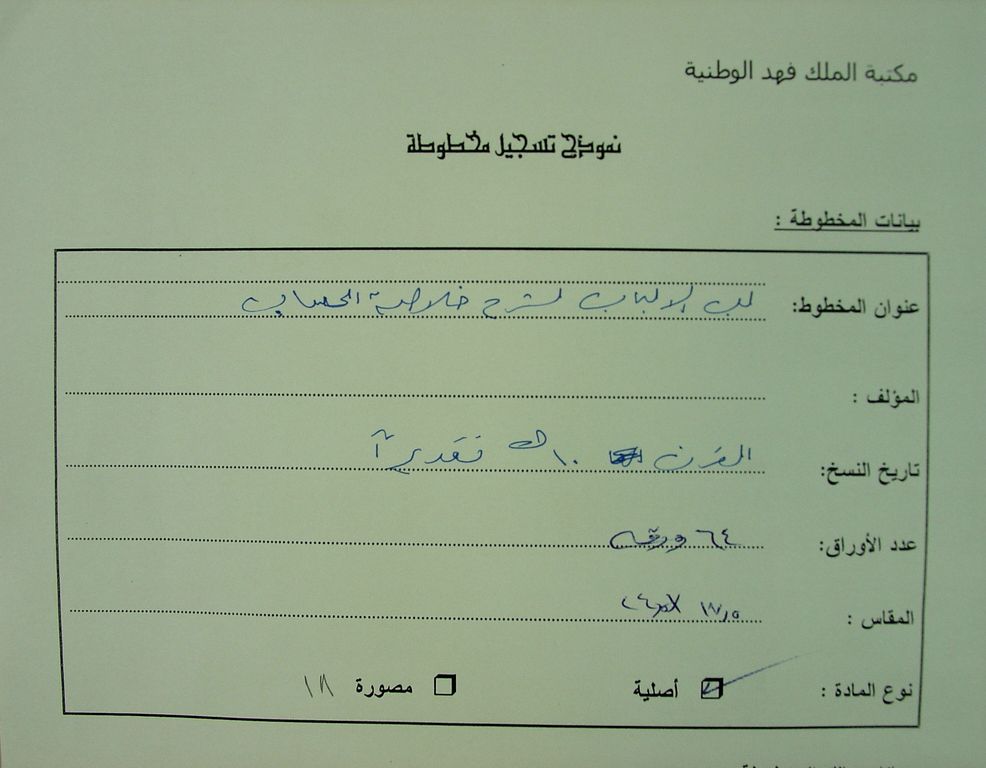 مكتبة الملك فهد الوطنية
نموذج تسجيل مخطوطة
بيانات المخطوطة :
عنوان المخطوط: لب الالباب لشرح خلاصة الحساب
المؤلف :
تاريخ النسخ: القرن ١٠ تقديراً
عدد الأوراق: ٦٤ ورقه
المقاس : ١٧٫٥
نوع المادة : أصلية مصورة ١٨